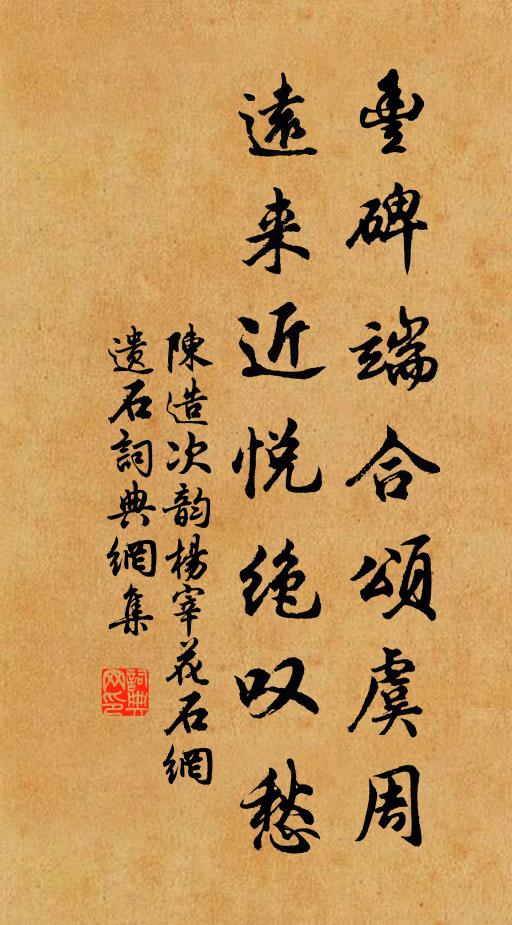 豊碑端合頌虞周
遠来近悦絶叹愁
陳造次韵楊宰花石綱
遺石詞典網集
詞典网印